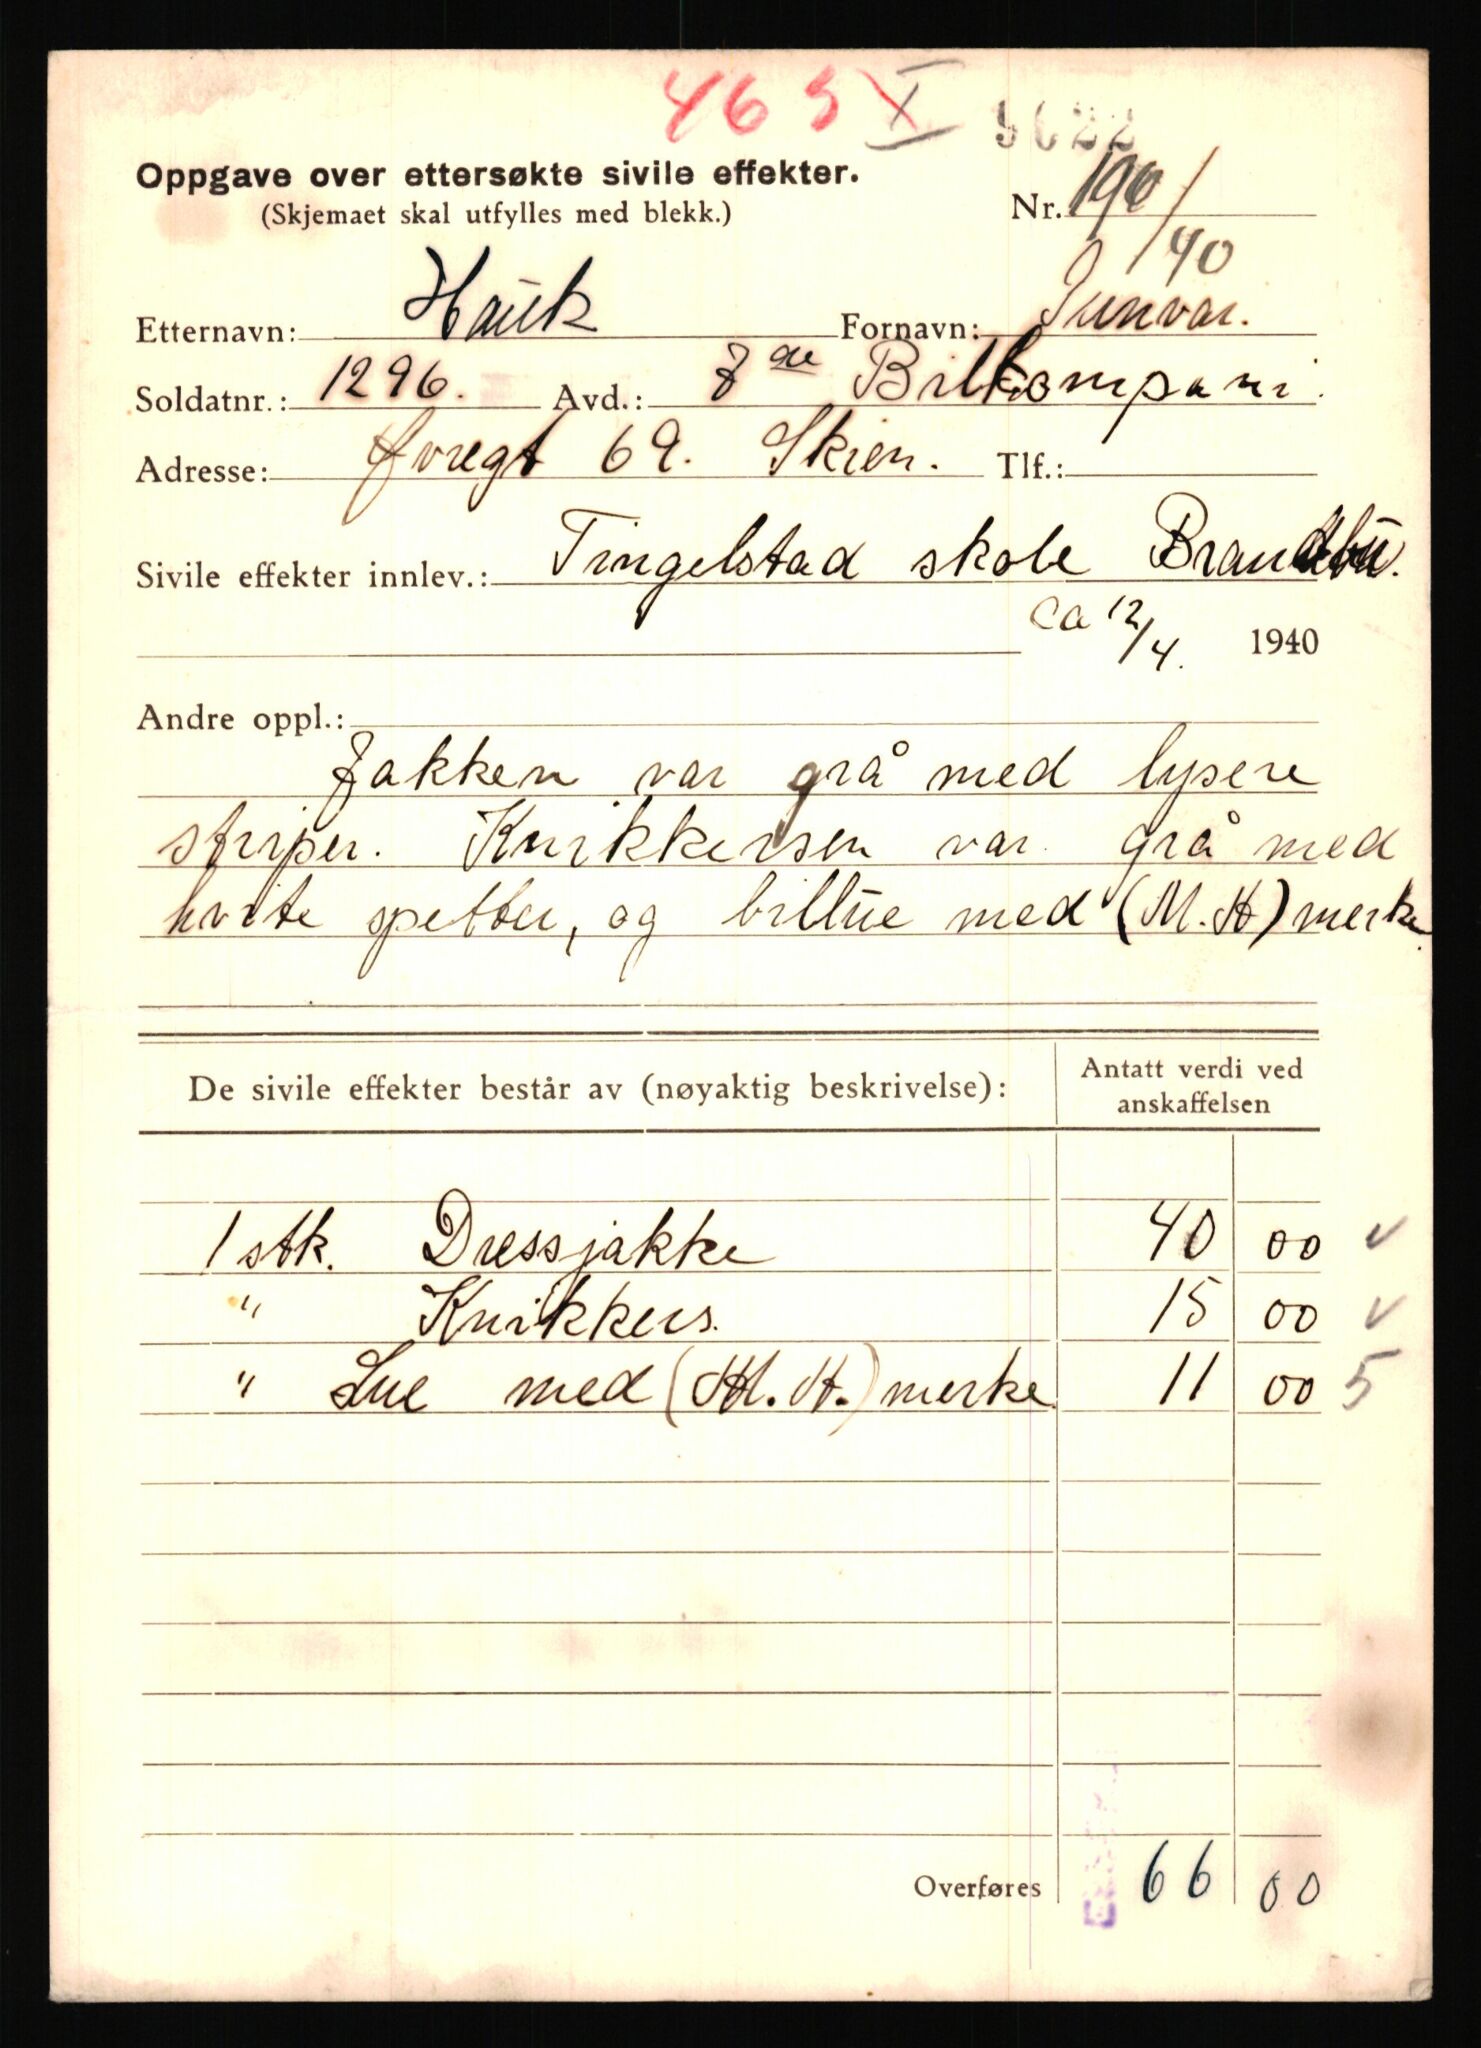 465 X 5622
Oppgave over ettersøkte sivile effekter.
(Skjemaet skal utfylles med blekk.)
Nr. 190/40
Etternavn: Hauk Fornavn: Gunvar.
Soldatnr.: 1296. Avd.: 7de Bilkompani.
Adresse: Øvregt 69. Skien. Tlf.:
Sivile effekter innlev.: Tingelstad skole Brandbu.
ca 12/4. 1940
Andre oppl.:
Jakken var grå med lysere
striper. Knikkersen var grå med
hvite spetter, og billue med (M.H) merke.
De sivile effekter består av (nøyaktig beskrivelse): Antatt verdi ved
anskaffelsen
1 stk. Dressjakke 40 00 v
" Knikkers. 15 00 v
" Lue med (M.H.) merke 11 00 5
Overføres 66 00